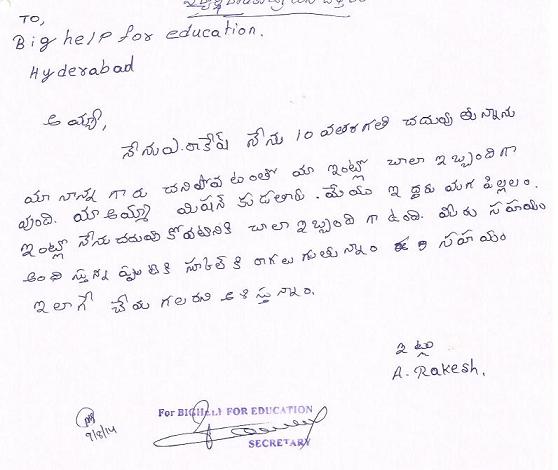 TO,
Big help for education.
Hyderabad
అయ్యా,
నేను ఎ. రాకేష్ నేను 10 వతరగతి చదువు తున్నాను
మా నాన్న గారు చనిపోవటంతో మా ఇంట్లో చాలా ఇబ్బందిగా
వుంది. మా అమ్మ మిషన్ కుడతారు. మేము ఇద్దరు మగ పిల్లలం.
ఇంట్లో నేను చదువు కోవటనికి చాలా ఇబ్బంది గా ఉంది. మీరు సహయం
అంది స్తున్న ప్పటి కి స్కూల్ కి రాగలు గుతున్నాం ఈ సహయం
ఇలాగే చేయ గలరని ఆశి స్తు న్నాం.
ఇట్లు
A. Rakesh.
For BIGHELP FOR EDUCATION
SECRETARY
9/8/14